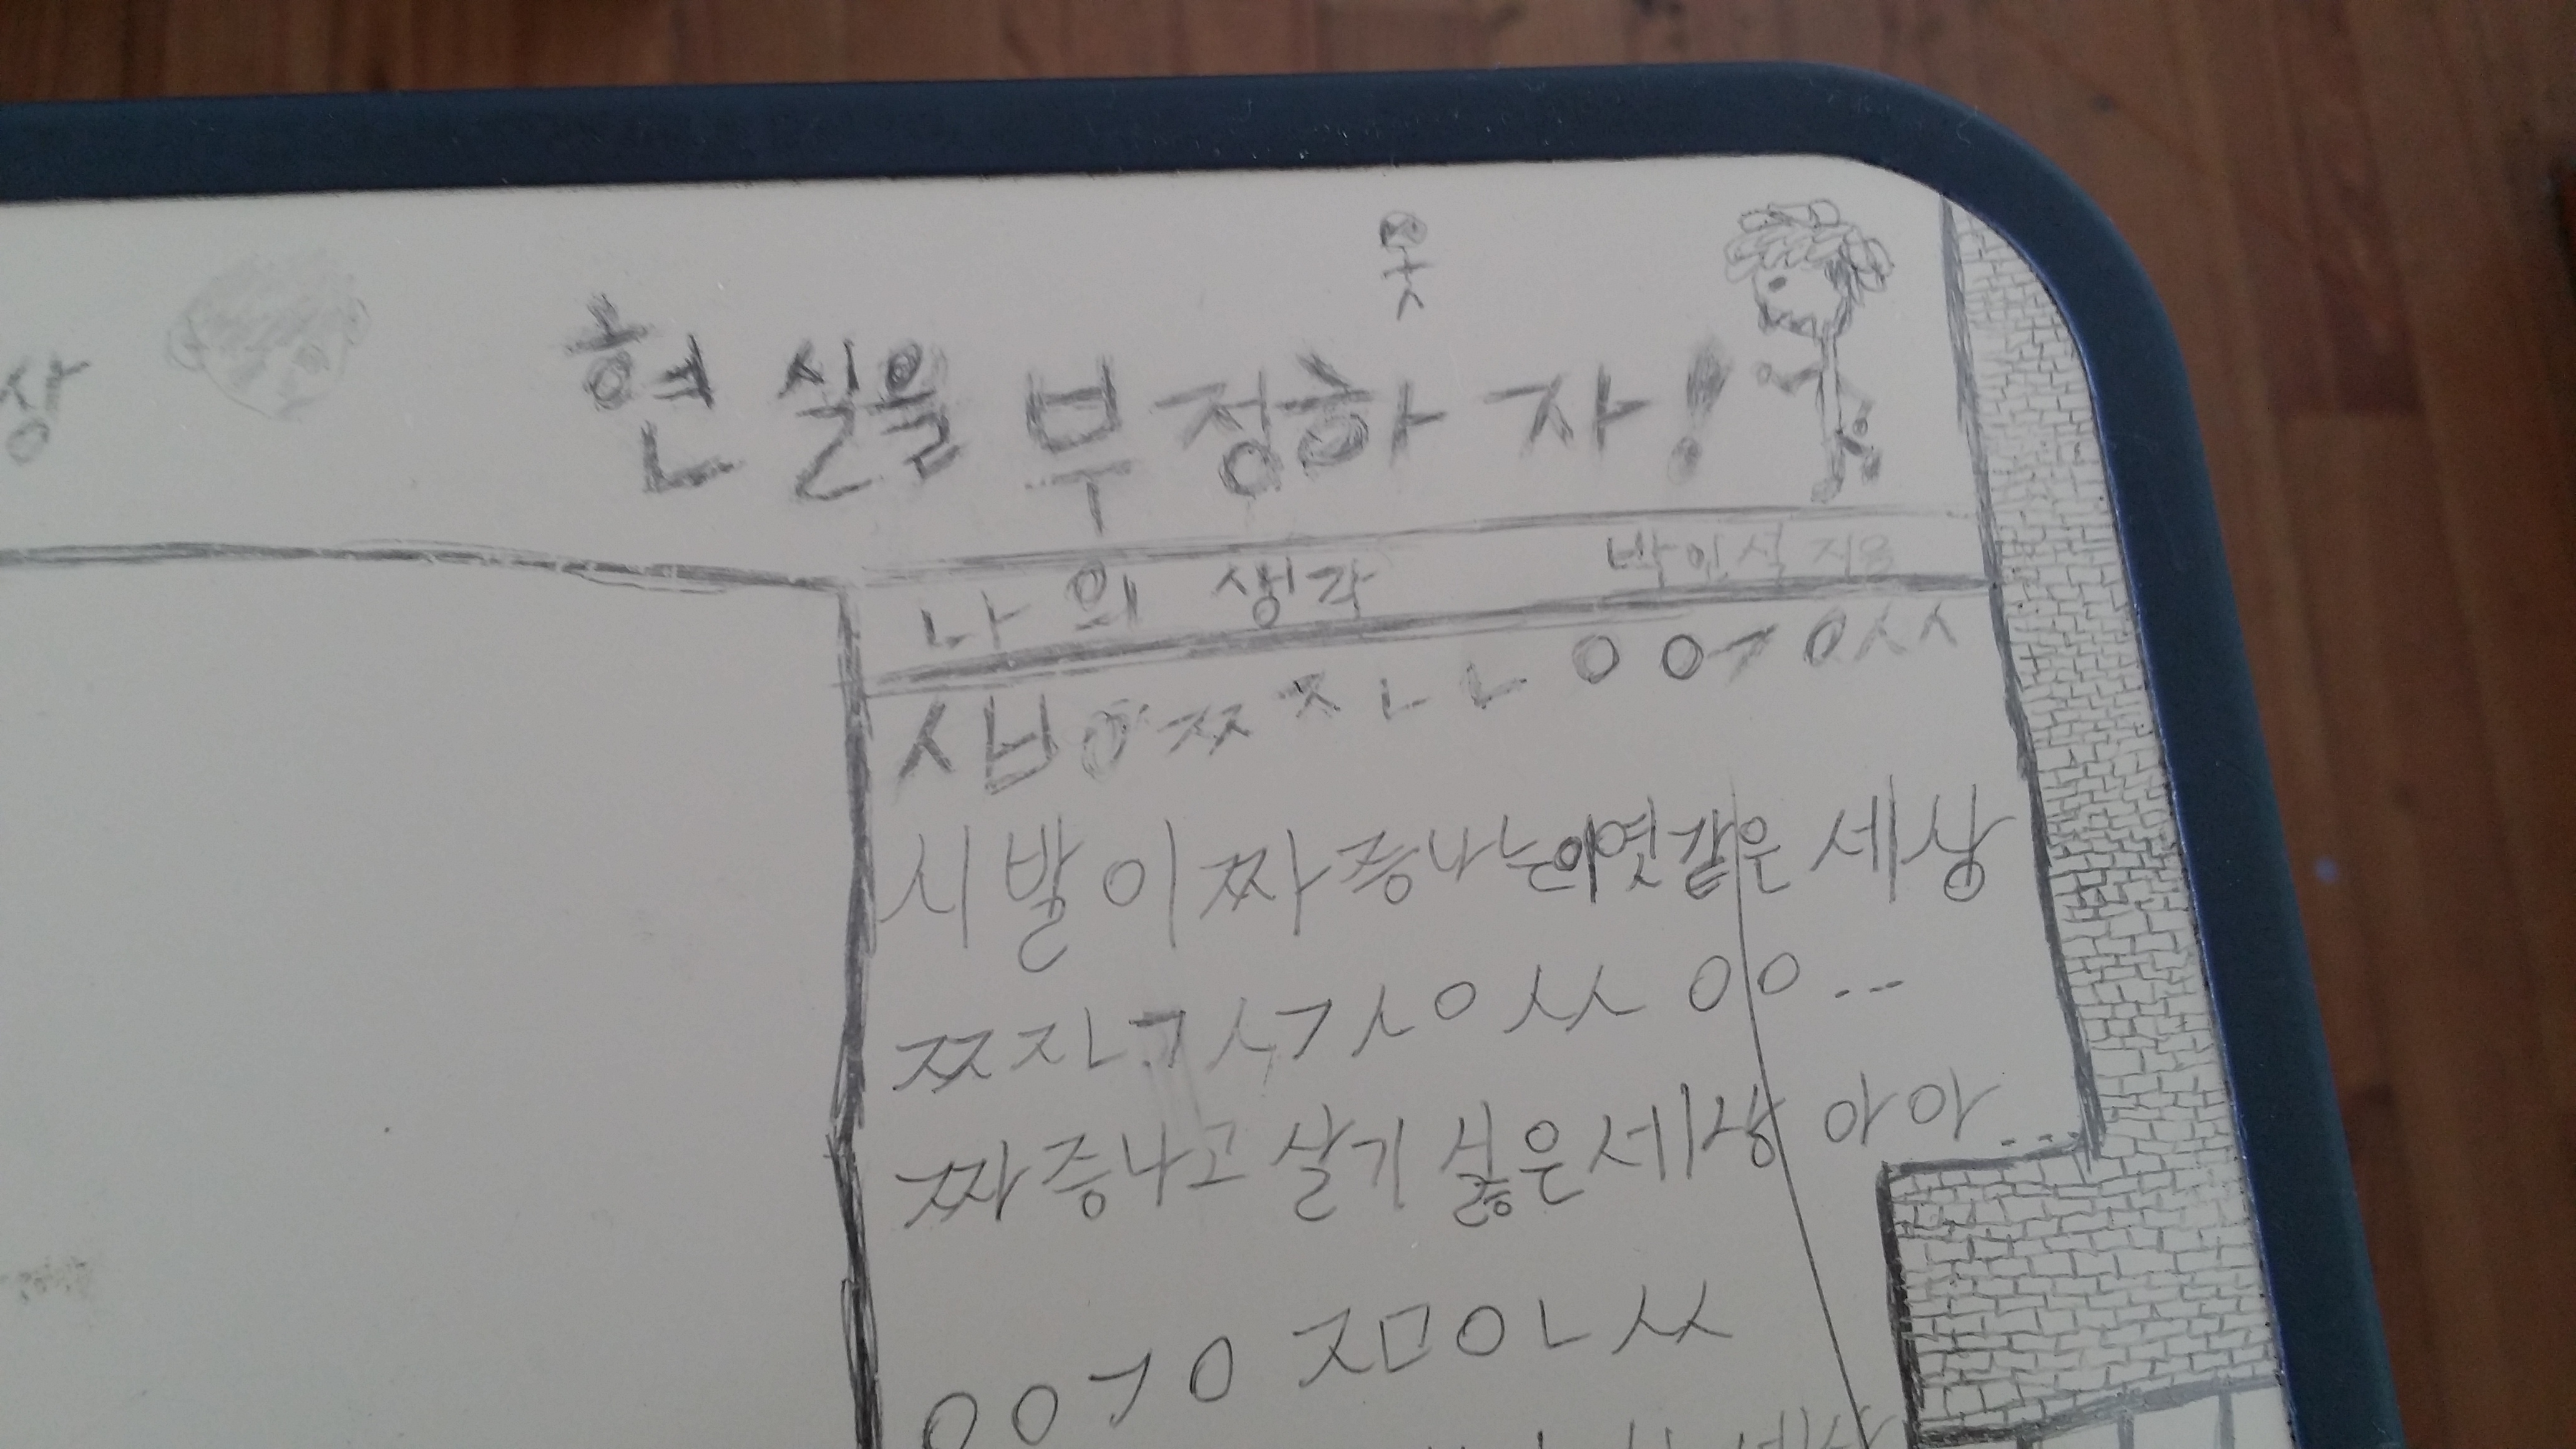 상
못
현실을 부정하자!
나의 생각 박인석 지음
ㅅㅂㅇㅉㅈㄴㄴㅇㅇㄱㅇㅅㅅ
시발이짜증나는이엿같은세상
ㅉㅈㄴㄱㅅㄱㅅㅇㅅㅅㅇㅇ...
짜증나고살기싫은세상 아아...
ㅇㅇㄱㅇ ㅈㅁㅇㄴㅅㅅ